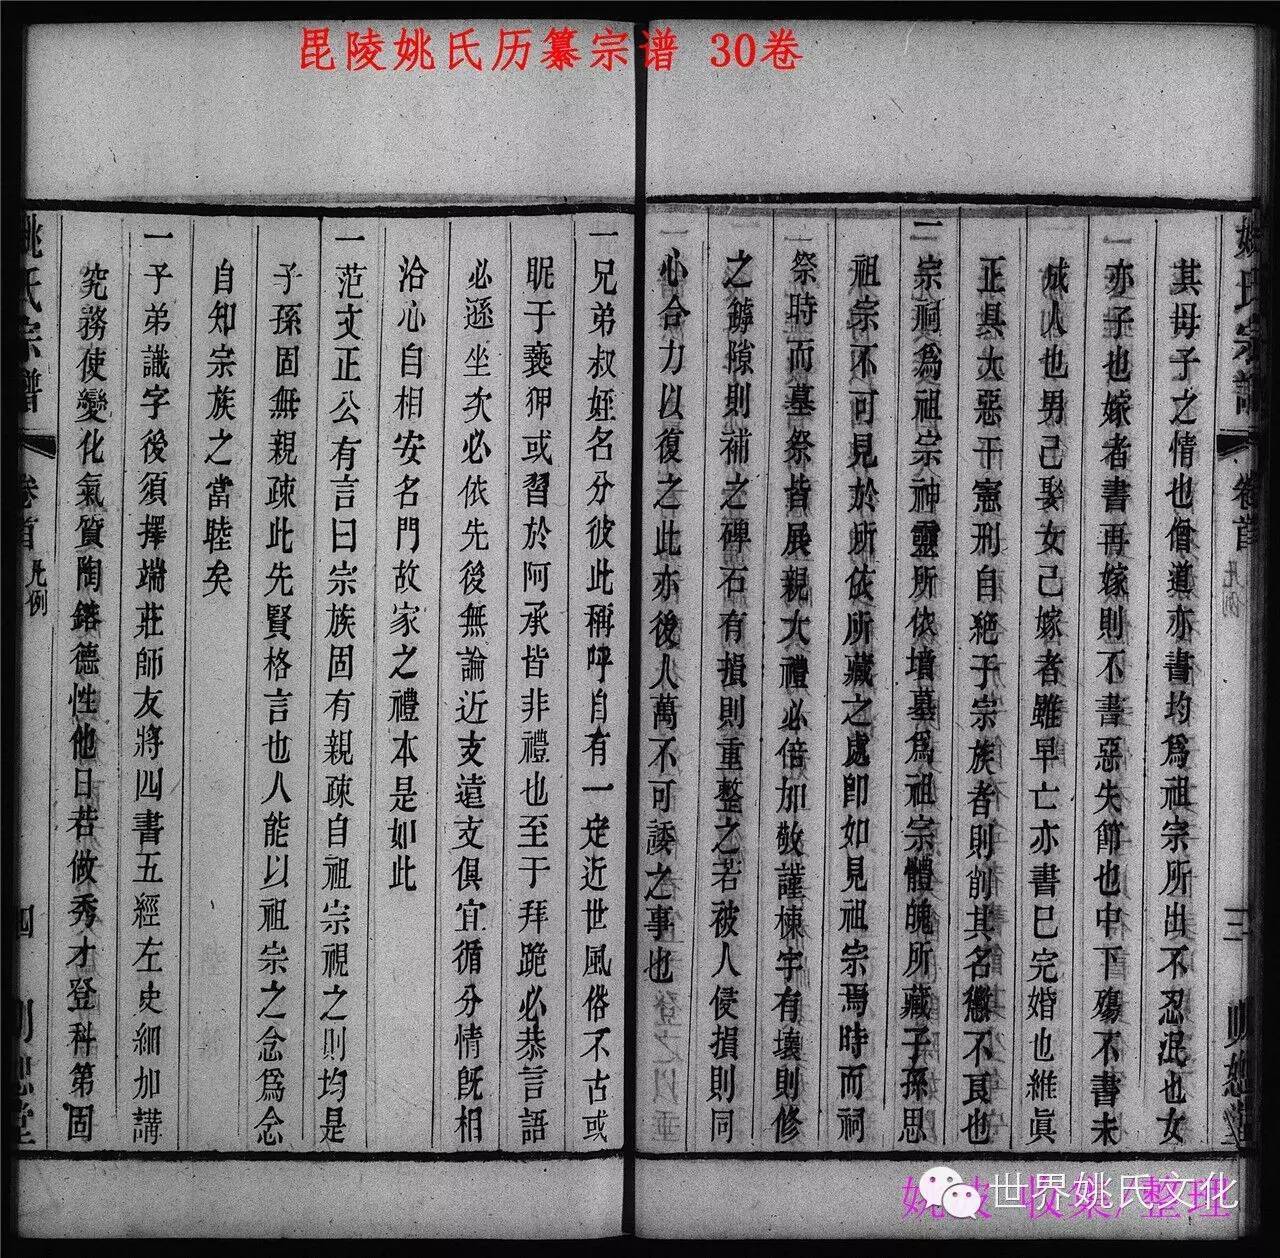 毘陵姚氏历纂宗谱 30卷
姚氏宗譜
卷首
凡例
三
其母子之情也僧道亦書均爲祖宗所出不忍泯也女
亦子也嫁者書再嫁則不書惡失節也中下殤不書未
成人也男已娶女已嫁者雖早亡亦書已完婚也維眞
正具大惡干憲刑自絕于宗族者則削其名懲不良也
二宗祠爲祖宗神靈所依墳墓爲祖宗體魄所藏子孫思
祖宗不可見於所依所藏之處卽如見祖宗焉時而祠
祭時而墓祭皆展親大禮必倍加敬謹棟宇有壞則修
之罅隙則補之碑石有損則重整之若被人侵損則同
心合力以復之此亦後人萬不可諉之事也
一兄弟叔姪名分彼此稱呼自有一定近世風俗不古或
昵于褻狎或習於阿承皆非禮也至于拜跪必恭言語
必遜坐次必依先後無論近支遠支俱宜循分情旣相
洽心自相安名門故家之禮本是如此
一范文正公有言曰宗族固有親疎自祖宗視之則均是
子孫固無親疎此先賢格言也人能以祖宗之念爲念
自知宗族之當睦矣
一子弟識字後須擇端莊師友將四書五經左史細加講
究務使變化氣質陶鎔德性他日若做秀才登科第固
姚氏宗譜
卷首
凡例
四
世界姚氏文化
收集/整理